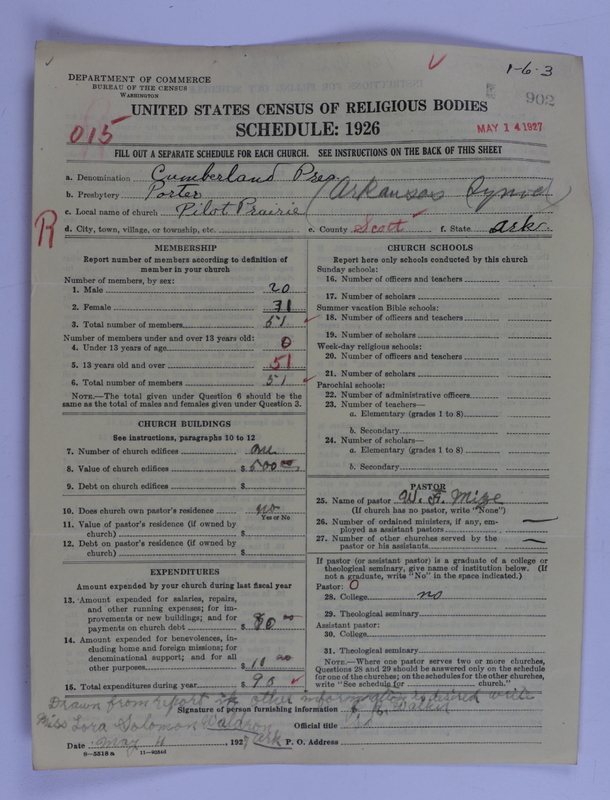 1-6-3
DEPARTMENT OF COMMERCE
BUREAU OF THE CENSUS
WASHINGTON
902
UNITED STATES CENSUS OF RELIGIOUS BODIES
015
SCHEDULE: 1926
MAY 14 1927
FILL OUT A SEPARATE SCHEDULE FOR EACH CHURCH. SEE INSTRUCTIONS ON THE BACK OF THIS SHEET
a. Denomination Cumberland Pres.
b. Presbytery Porter (Arkansas Synod)
c. Local name of church Pilot Prairie
R
d. City, town, village, or township, etc. e. County Scott f. State Ark.
MEMBERSHIP
Report number of members according to definition of
member in your church
Number of members, by sex:
1. Male 20
2. Female 31
3. Total number of members 51
Number of members under and over 13 years old:
4. Under 13 years of age 0
5. 13 years old and over 51
6. Total number of members 51
NOTE.—The total given under Question 6 should be
same as the total of males and females given under Question 3.
CHURCH BUILDINGS
See instructions, paragraphs 10 to 12
7. Number of church edifices one
8. Value of church edifices $ 500 00
9. Debt on church edifices $
10. Does church own pastor's residence no
Yes or No
11. Value of pastor's residence (if owned by
church) $
12. Debt on pastor's residence (if owned by
church) $
EXPENDITURES
Amount expended by your church during last fiscal year
13. Amount expended for salaries, repairs,
and other running expenses; for im-
provements or new buildings; and for
payments on church debt $ 80 00
14. Amount expended for benevolences, in-
cluding home and foreign missions; for
denominational support; and for all
other purposes $
15. Total expenditures during year $
CHURCH SCHOOLS
Report here only schools conducted by this church
Sunday schools:
16. Number of officers and teachers
17. Number of scholars
Summer vacation Bible schools:
18. Number of officers and teachers
19. Number of scholars
Week-day religious schools:
20. Number of officers and teachers
21. Number of scholars
Parochial schools:
22. Number of administrative officers
23. Number of teachers—
a. Elementary (grades 1 to 8)
b. Secondary
24. Number of scholars—
a. Elementary (grades 1 to 8)
b. Secondary
PASTOR
25. Name of pastor W. F. Mize
(If church has no pastor, write "None")
26. Number of ordained ministers, if any, em-
ployed as assistant pastors —
27. Number of other churches served by the
pastor or his assistants —
If pastor (or assistant pastor) is a graduate of a college or
theological seminary, give name of institution below. (If
not a graduate, write "No" in the space indicated.)
Pastor: 0
28. College no
29. Theological seminary
Assistant pastor:
30. College
31. Theological seminary
NOTE.—Where one pastor serves two or more churches,
Questions 28 and 29 should be answered only on the schedule
for one of the churches; on the schedules for the other churches,
write "See schedule for church."
Drawn from report if other information required write
Signature of person furnishing information
Miss Lora Solomon Waldron Official title
Date May 11, 1927 Ark P. O. Address
8-5518a